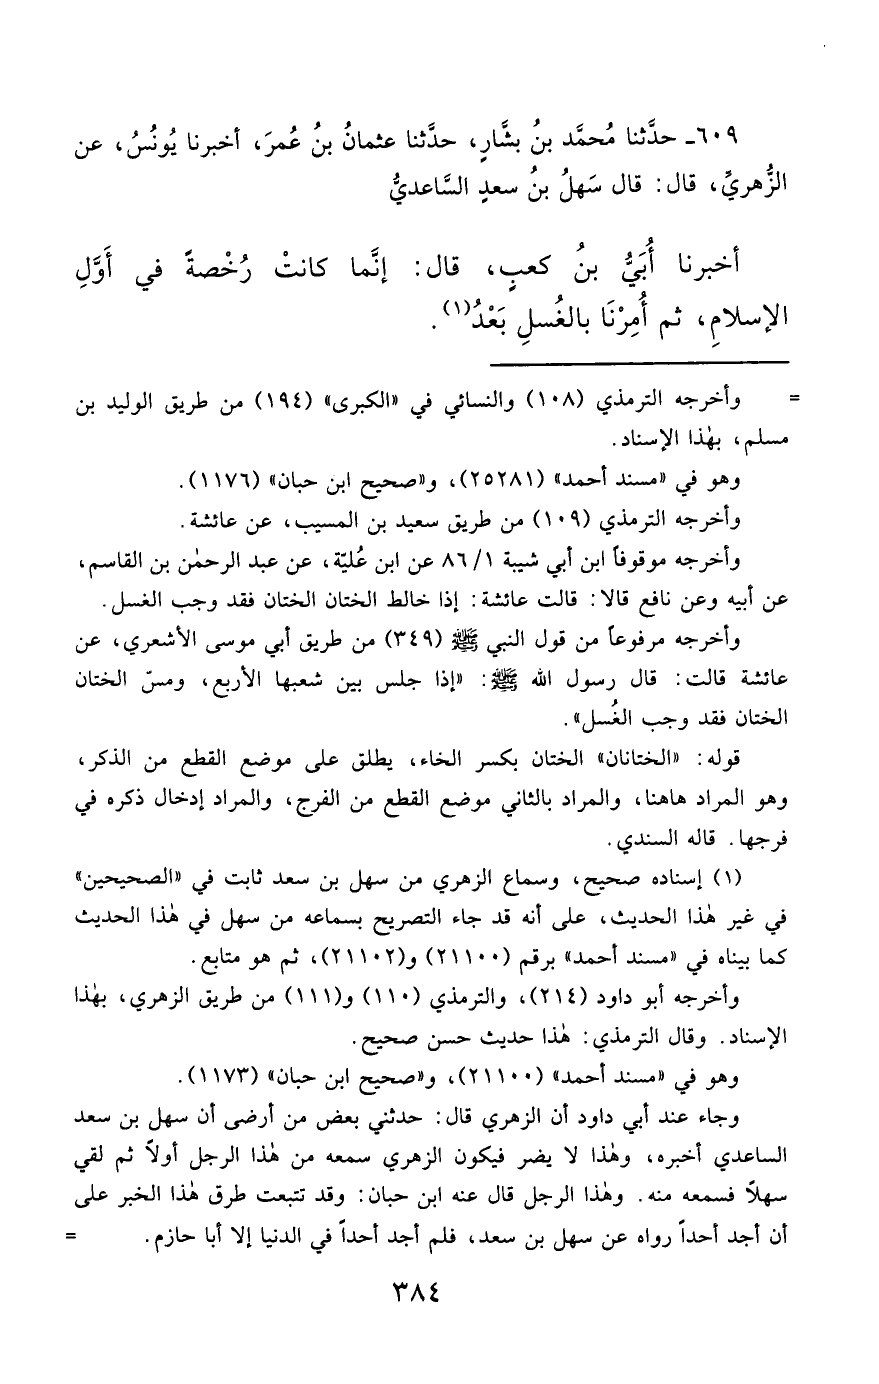 ٦٠٩ـ حدَّثنا مُحمَّد بنُ بشَّارٍ، حدَّثنا عثمانُ بنُ عُمرَ، أخبرنا يُونُسُ، عن
الزُّهريِّ، قال: قال سَهلُ بنُ سعدٍ السَّاعديُّ
أخبرنا أُبَيُّ بنُ كعبٍ، قال: إنَّما كانتْ رُخْصةً في أَوَّلِ
الإسلامِ، ثم أُمِرْنَا بالغُسلِ بَعْدُ(١).
= وأخرجه الترمذي (١٠٨) والنسائي في «الكبرى» (١٩٤) من طريق الوليد بن
مسلم، بهٰذا الإسناد.
وهو في «مسند أحمد» (٢٥٢٨١)، و«صحيح ابن حبان» (١١٧٦).
وأخرجه الترمذي (١٠٩) من طريق سعيد بن المسيب، عن عائشة.
وأخرجه موقوفاً ابن أبي شيبة ١/ ٨٦ عن ابن عُليّة، عن عبد الرحمٰن بن القاسم،
عن أبيه وعن نافع قالا: قالت عائشة: إذا خالط الختان الختان فقد وجب الغسل.
وأخرجه مرفوعاً من قول النبي ﷺ (٣٤٩) من طريق أبي موسى الأشعري، عن
عائشة قالت: قال رسول الله ﷺ: «إذا جلس بين شعبها الأربع، ومسّ الختان
الختان فقد وجب الغُسل».
قوله: «الختانان» الختان بكسر الخاء، يطلق على موضع القطع من الذكر،
وهو المراد هاهنا، والمراد بالثاني موضع القطع من الفرج، والمراد إدخال ذكره في
فرجها. قاله السندي.
(١) إسناده صحيح، وسماع الزهري من سهل بن سعد ثابت في «الصحيحين»
في غير هٰذا الحديث، على أنه قد جاء التصريح بسماعه من سهل في هٰذا الحديث
كما بيناه في «مسند أحمد» برقم (٢١١٠٠) و(٢١١٠٢)، ثم هو متابع.
وأخرجه أبو داود (٢١٤)، والترمذي (١١٠) و(١١١) من طريق الزهري، بهٰذا
الإسناد. وقال الترمذي: هٰذا حديث حسن صحيح.
وهو في «مسند أحمد» (٢١١٠٠)، و«صحيح ابن حبان» (١١٧٣).
وجاء عند أبي داود أن الزهري قال: حدثني بعض من أرضى أن سهل بن سعد
الساعدي أخبره، وهٰذا لا يضر فيكون الزهري سمعه من هٰذا الرجل أولاً ثم لقي
سهلاً فسمعه منه. وهٰذا الرجل قال عنه ابن حبان: وقد تتبعت طرق هٰذا الخبر على
أن أجد أحداً رواه عن سهل بن سعد، فلم أجد أحداً في الدنيا إلا أبا حازم. =
٣٨٤